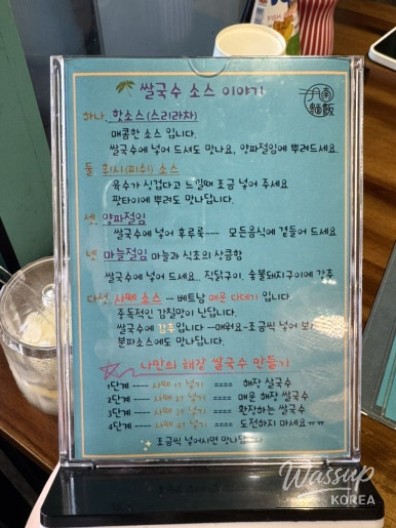 쌀국수 소스 이야기
하나. 핫소스(스리라차)
매콤한 소스 입니다.
쌀국수에 넣어 드셔도 맛나요, 양파절임에 뿌려드세요.
둘 소스
육수가 싱겁다고 느낄때 조금 넣어 주세요
팟타이에 뿌려도 맛나답니다.
셋. 양파절임
쌀국수에 넣어 후루룩--- 모든음식에 곁들여 드세요
넷. 마늘절임 마늘과 식초의 상큼함
쌀국수에 넣어 드세요..
다섯. 사떼 소스 -- 베트남 매운 다데기 입니다.
중독적인 감칠맛이 난답니다.
쌀국수에 강추입니다 --매워요-조금씩 넣어
분짜소스에도 맛나답니다.
나만의 해장 쌀국수 만들기
1단계 ---- 사떼 넣기 ==== 해장 쌀국수
2단계 ---- 사떼 넣기 ==== 매운 해장 쌀국수
3단계 ---- 사떼 넣기 ==== 환장하는 쌀국수
4단계 ---- 사떼 넣기 ==== 도전하지 마세요ㅠㅠ
조금씩 넣어시면
Wassup
KOREA